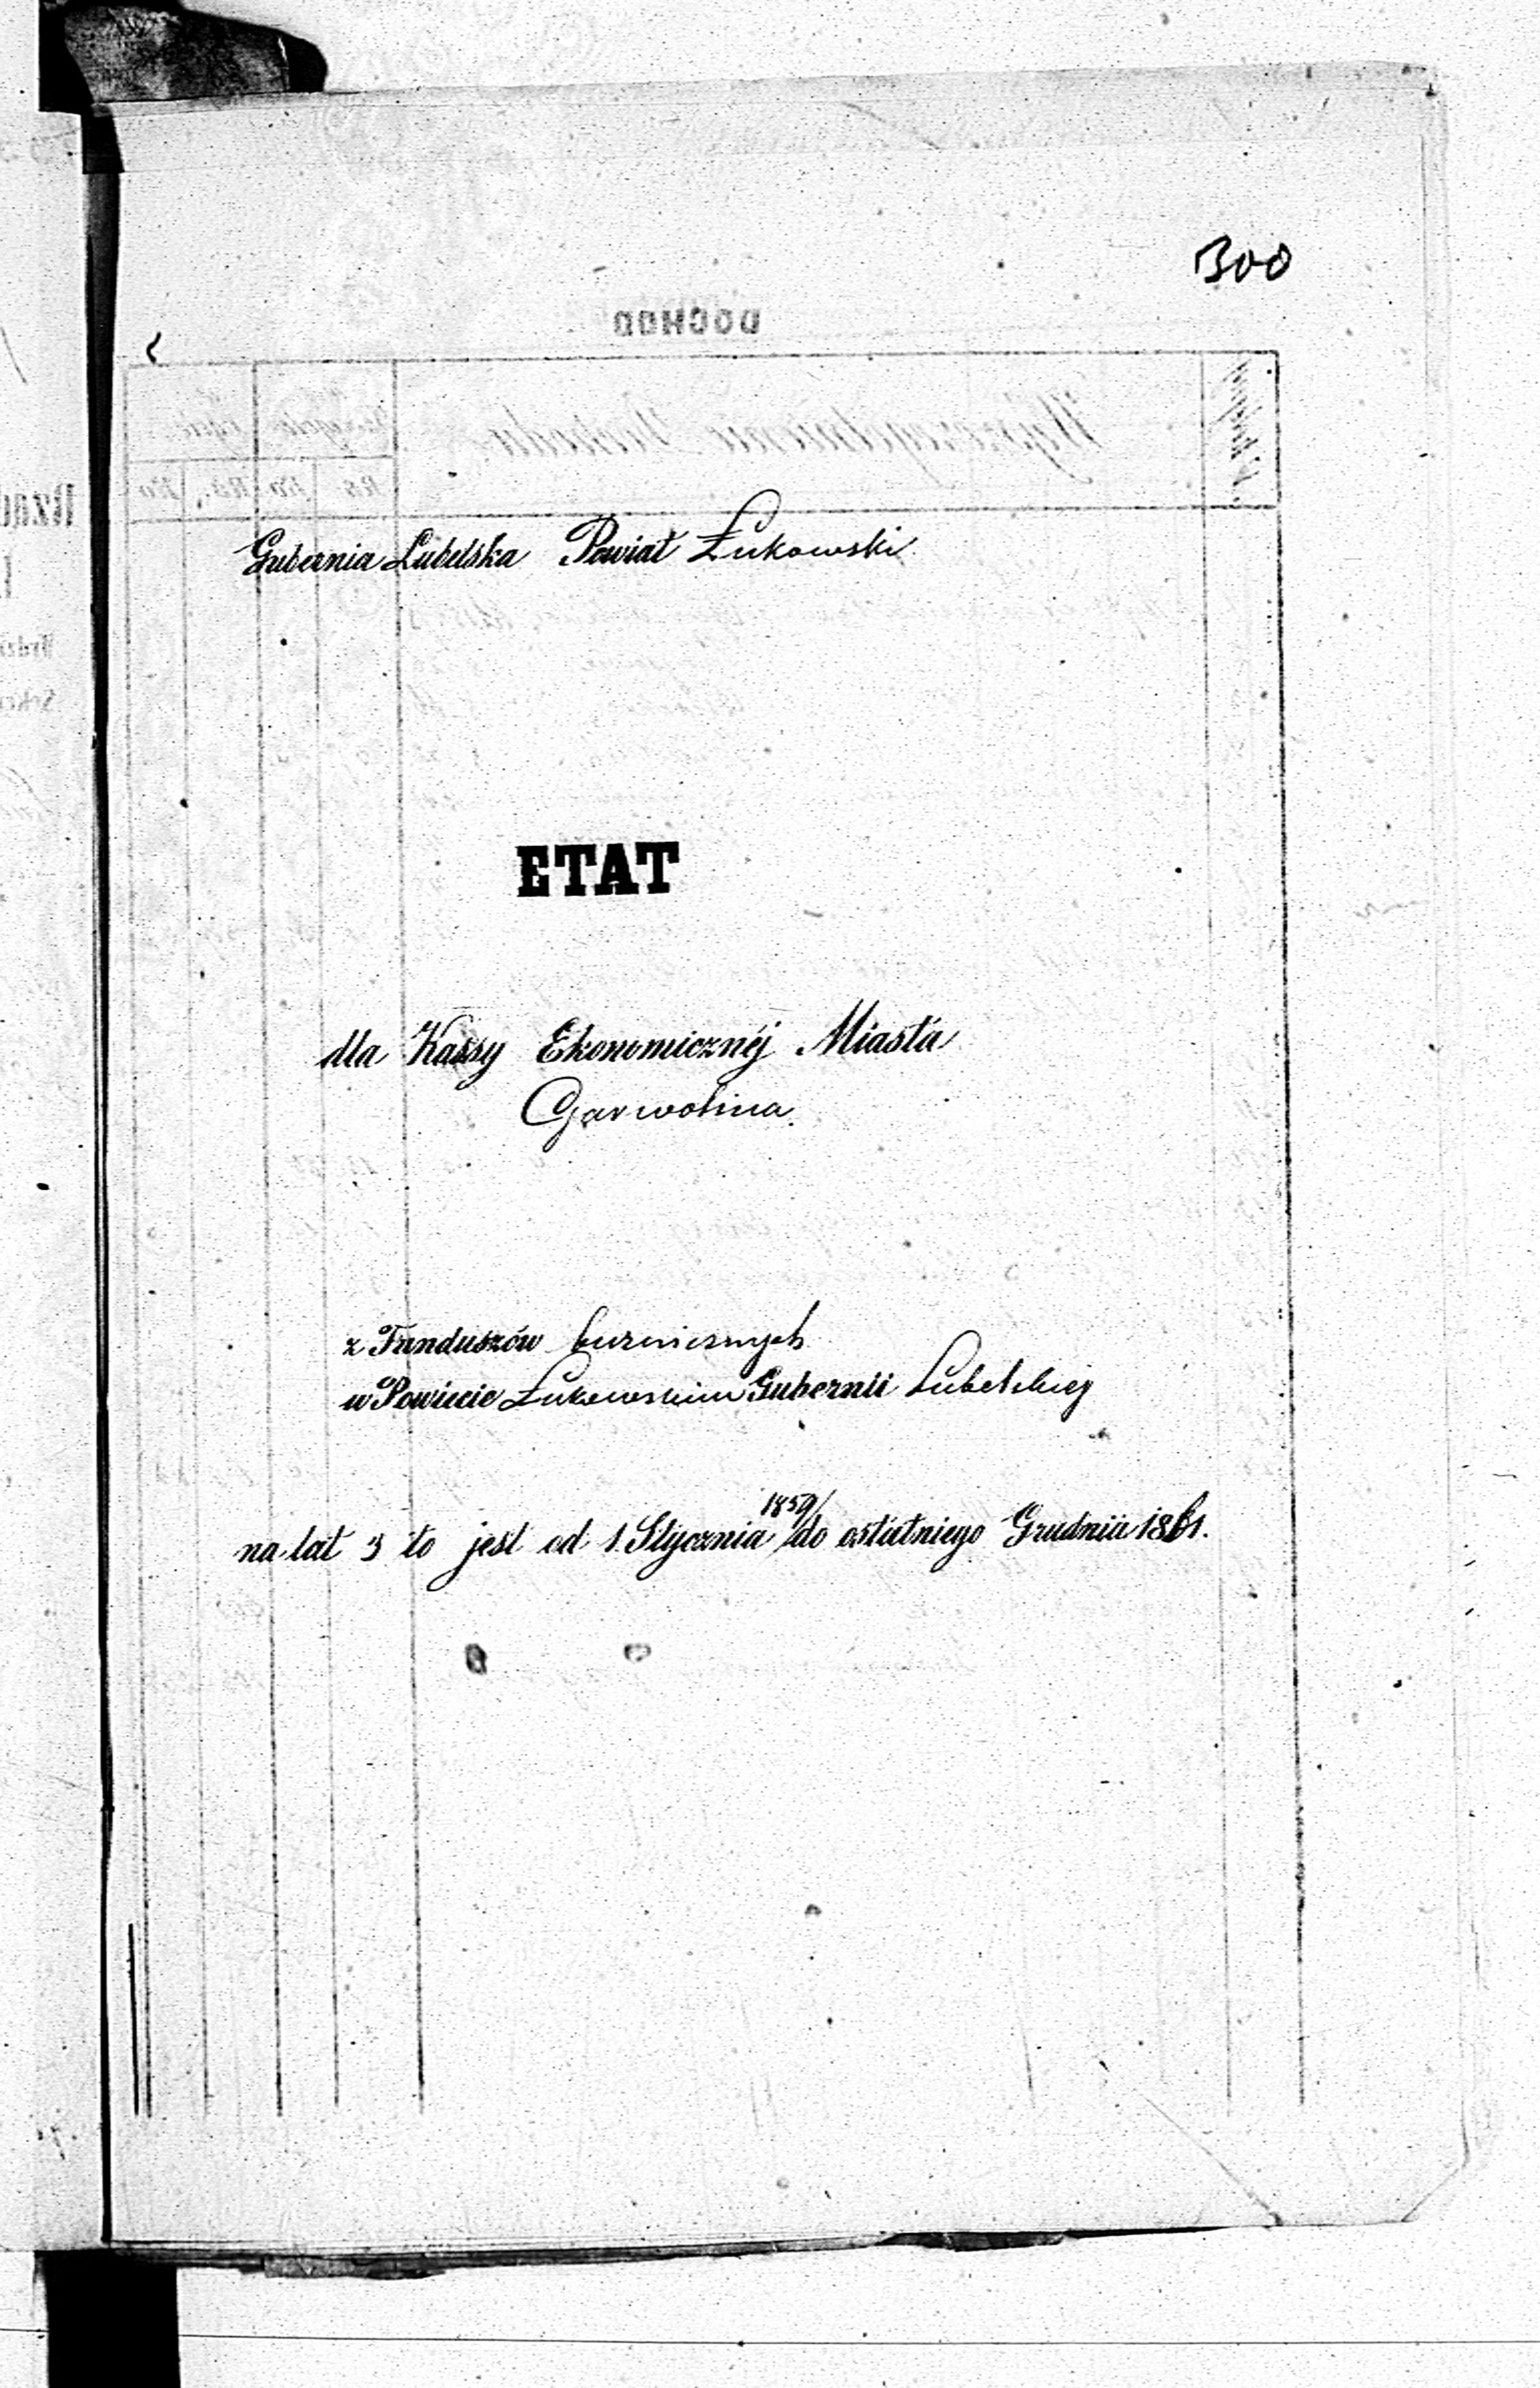 300
DOCHOD
Gubernia Lubelska Powiat Łukowski
ETAT
dla Kassy Ekonomicznéj Miasta
Garwolina.
z Funduszów
w Powiecie Łukowskim Gubernii Lubelskiej
1859
na lat 3 to jest od 1. Stycznia do ostatniego Grudnia 1861.